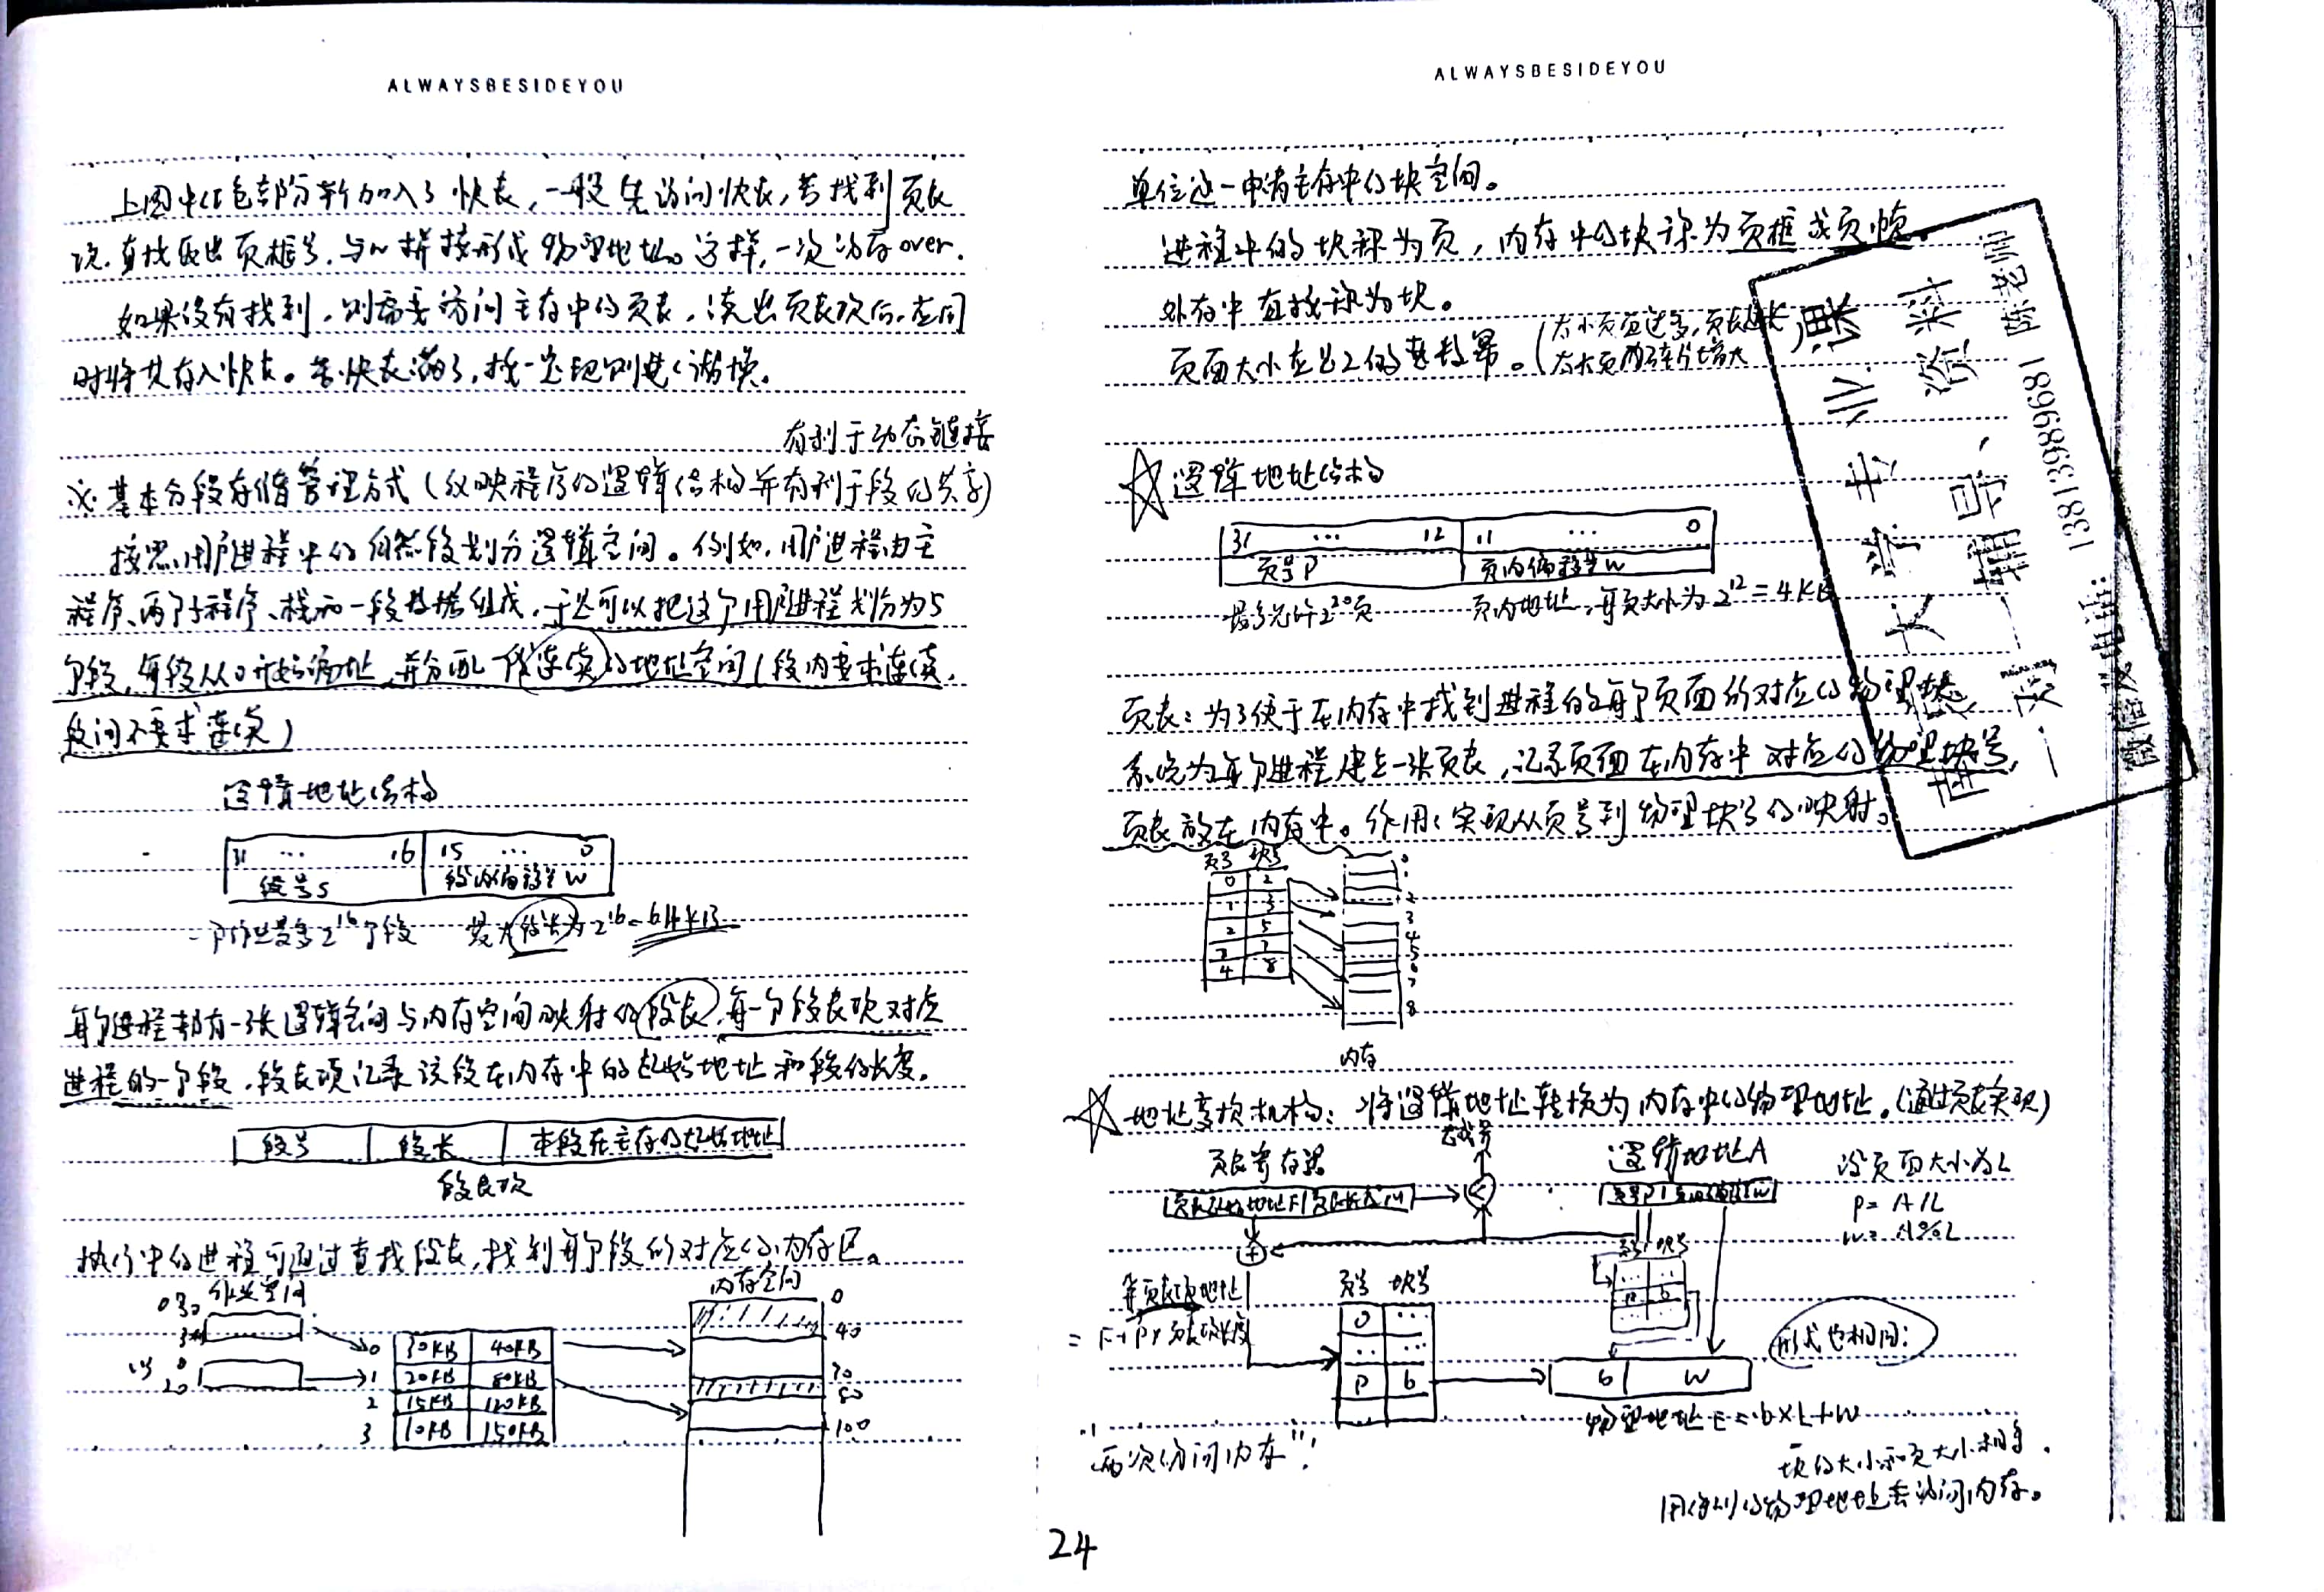 ALWAYSBESIDEYOU
上图中红色部分新加入了快表，一般先访问快表，若找到页表
项，直接取出页框号，与w拼接形成物理地址。这样，一次访存over.
如果没有找到，则需要访问主存中的页表，读出页表项后，应同
时将其存入快表。若快表满了，按一定规则进行替换.
有利于动态链接
※ 基本分段存储管理方式（反映程序的逻辑结构并有利于段的共享）
按照用户进程中的自然段划分逻辑空间。例如，用户进程由主
程序、两个子程序、栈和一段数据组成，于是可以把这个用户进程划分为5
个段，每段从0开始编址，并分配一段连续的地址空间（段内要求连续，
段间不要求连续）
逻辑地址结构
31 ... 16 15 ... 0
段号S 段内偏移量W
一个作业最多2^16个段 最大段长为2^16=64KB
每个进程都有一张逻辑空间与内存空间映射的段表，每一个段表项对应
进程的一个段，段表项记录该段在内存中的起始地址和段的长度。
段号 段长 本段在主存的起始地址
段表项
执行中的进程可通过查找段表，找到每个段的对应的内存区。
作业空间
内存空间
0 30KB 40KB
1 20KB 80KB
2 15KB 120KB
3 10KB 150KB
0
40
70
80
100
ALWAYSBESIDEYOU
单位逐一申请主存中的块空间。
进程中的块称为页，内存中的块称为页框或页帧。
外存中直接称为块。
页面大小应是2的整数幂。（太小页面过多，页表过长
太大页内碎片增大）
逻辑地址结构
31 ... 12 11 ... 0
页号P 页内偏移量W
最多允许2^20页 页内地址，每页大小为2^12=4KB
页表：为了便于在内存中找到进程的每个页面所对应的物理块
系统为每个进程建立一张页表，记录页面在内存中对应的物理块号，
页表放在内存中。作用：实现从页号到物理块号的映射。
页号 块号
0 2
1 3
2 5
3 7
4 8
0
1
2
3
4
5
6
7
8
内存
地址变换机构：将逻辑地址转换为内存中的物理地址.（通过页表实现）
越界
页表寄存器
逻辑地址A
设页面大小为L
页表起始地址F 页表长度M
<
页号P 页内偏移量W
P=A/L
W=A%L
+
页号 块号
... ...
P b
页号 块号
0 ...
... ...
P b
算页表项地址
=F+P×页表项长度
形式也相同：
b W
物理地址E=b×L+W
"两次访问内存"！
块的大小和页大小相等.
用得到的物理地址去访问内存。
24
18981398681